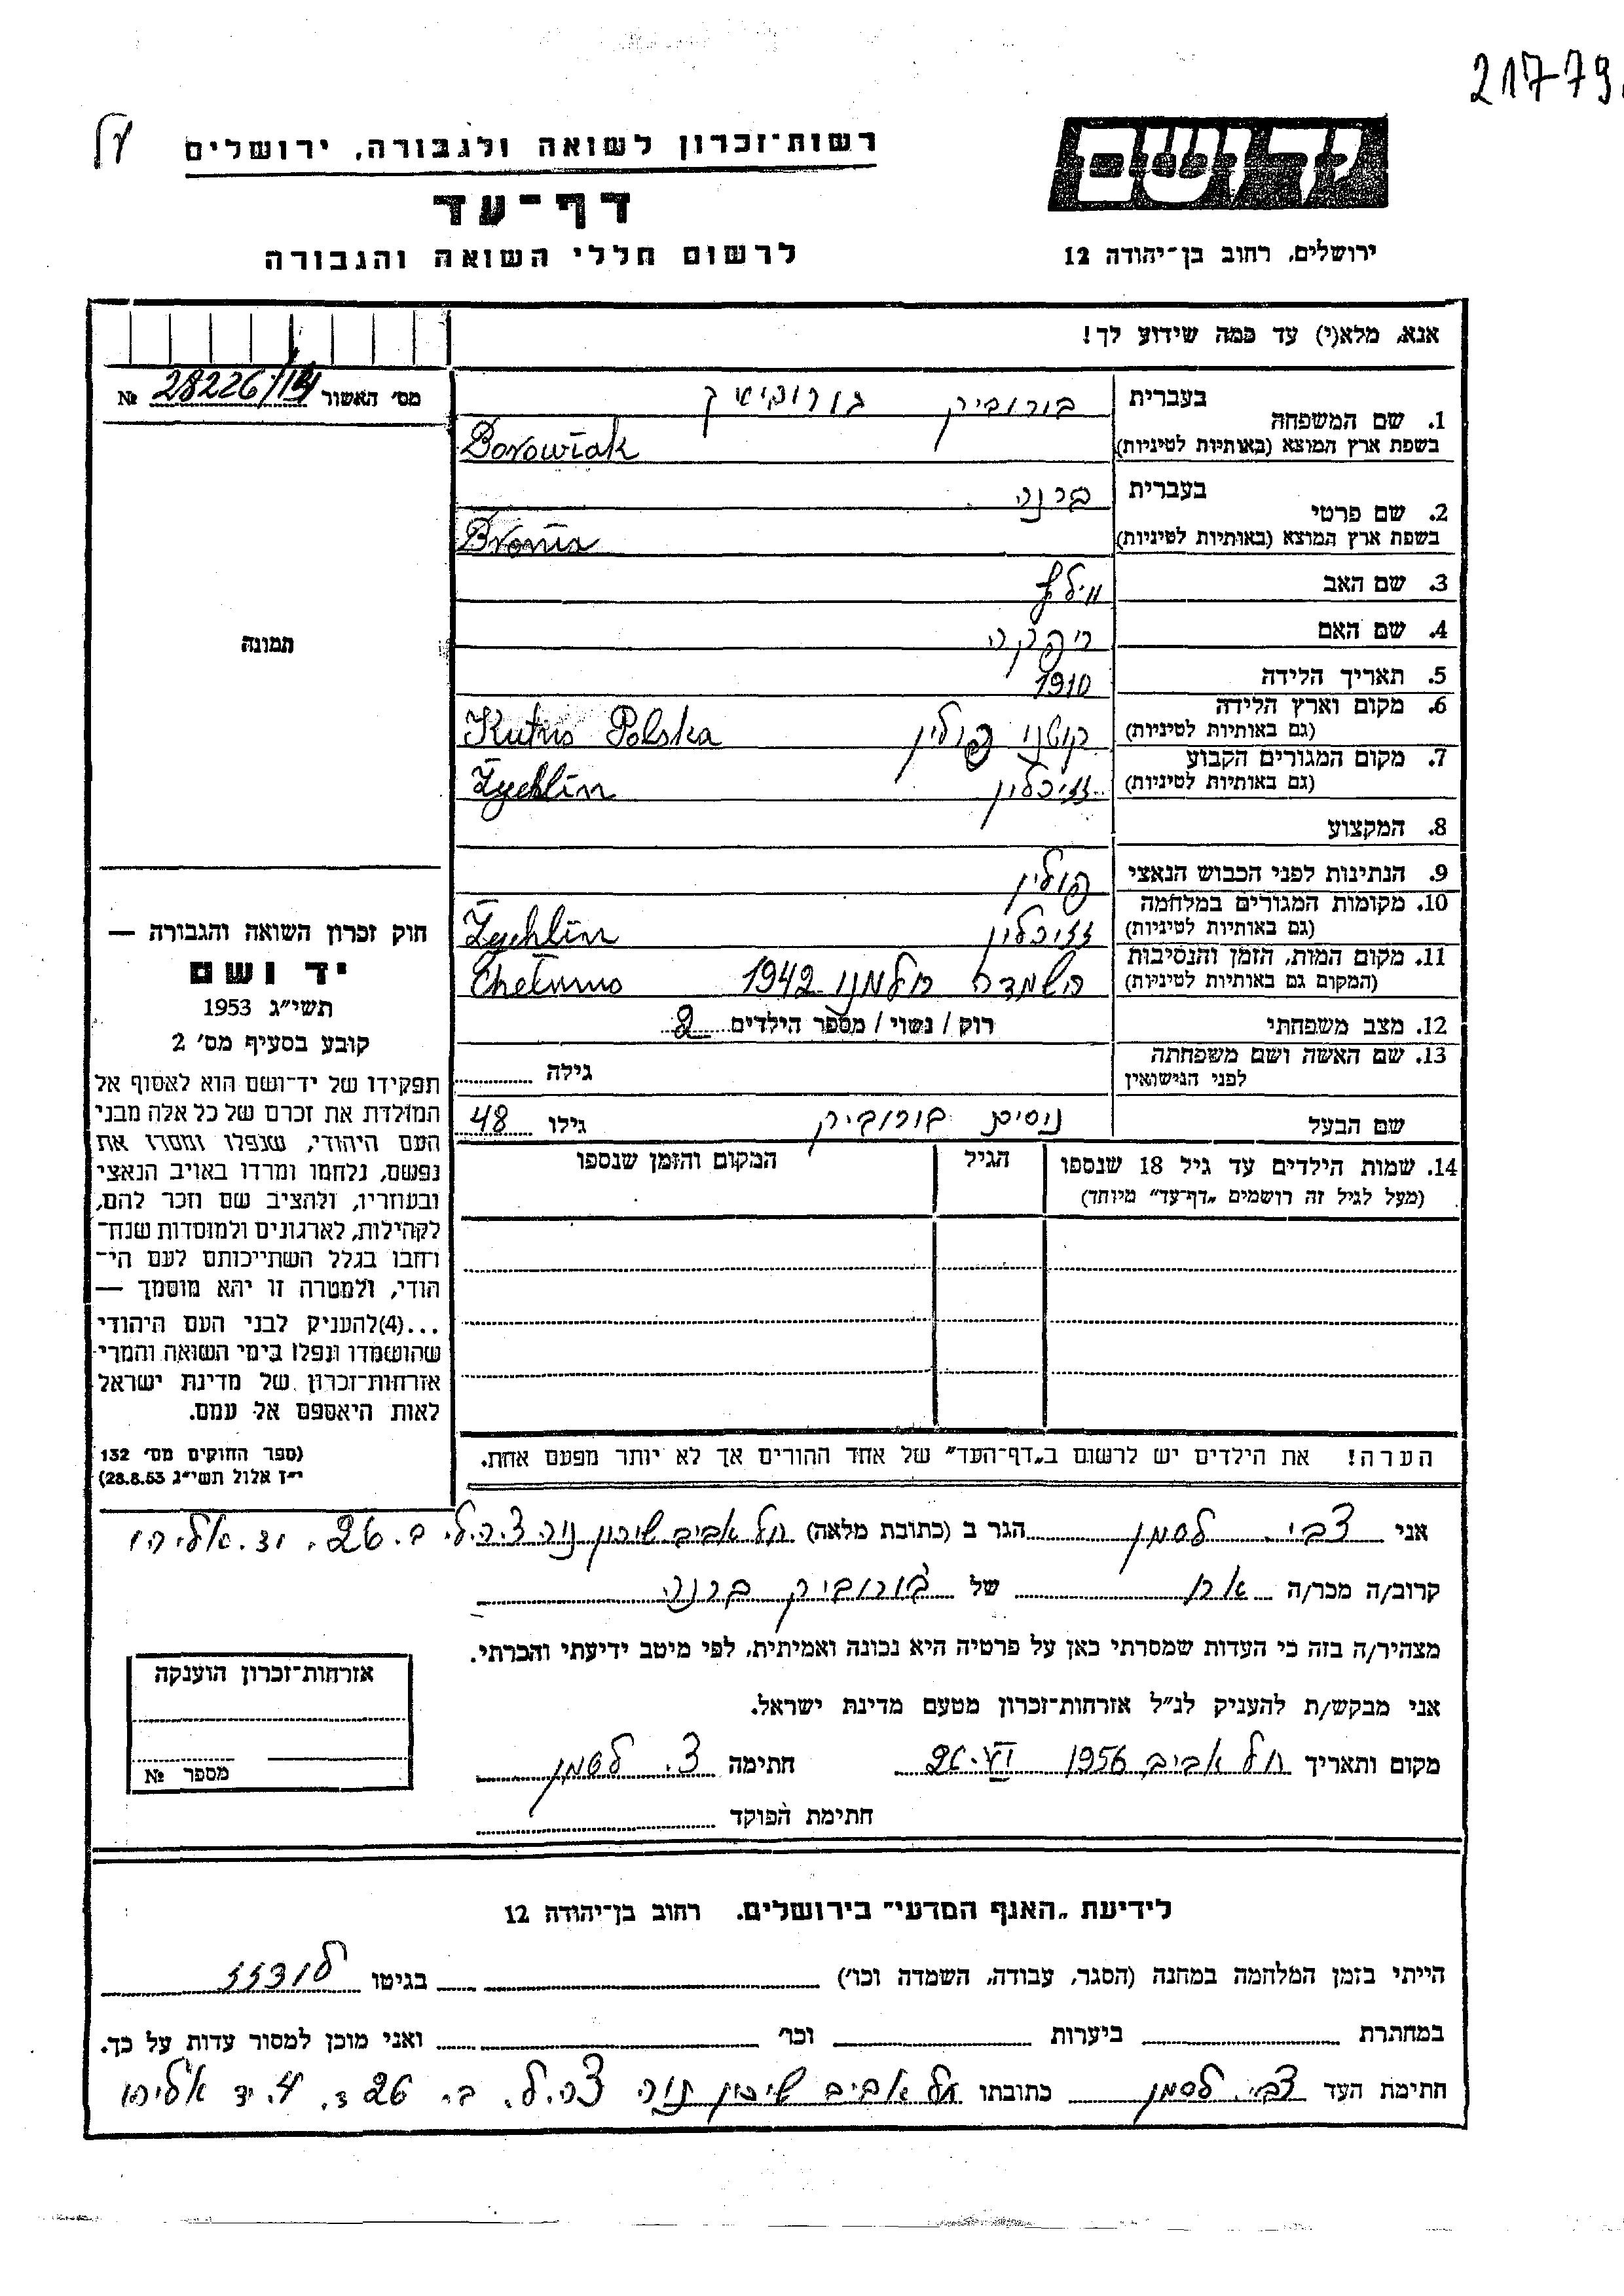 21779
רשות־זכרון לשואה ולגבורה, ירושלים
דף־עד
לרשום חללי השואה והגבורה
יד ושם
ירושלים, רחוב בן־יהודה 12
אנא, מלא(י) עד כמה שידוע לך!
מס' האשור 28226/ №
1. שם המשפחה בעברית בורוביק
בשפת ארץ המוצא (באותיות לטיניות) Borowiak
2. שם פרטי בעברית ברנה
בשפת ארץ המוצא (באותיות לטיניות) Bronia
3. שם האב
4. שם האם רבקה
5. תאריך הלידה 1910
6. מקום וארץ הלידה (גם באותיות לטיניות) קוטנו פולין Kutno Polska
7. מקום המגורים הקבוע (גם באותיות לטיניות) זיכלין Zychlin
8. המקצוע
9. הנתינות לפני הכבוש הנאצי פולין
10. מקומות המגורים במלחמה (גם באותיות לטיניות) זיכלין Zychlin
11. מקום המות, הזמן והנסיבות (המקום גם באותיות לטיניות) השמדה חלמנו 1942 Chełmno
12. מצב משפחתי רוק / נשוי / מספר הילדים 2
13. שם האשה ושם משפחתה לפני הנישואין גילה
שם הבעל ניסים בורוביק גילו 48
14. שמות הילדים עד גיל 18 שנספו
(מעל לגיל זה רושמים „דף־עד" מיוחד)
הגיל
המקום והזמן שנספו
הערה! את הילדים יש לרשום ב„דף־העד" של אחד ההורים אך לא יותר מפעם אחת.
תמונה
חוק זכרון השואה והגבורה —
יד ושם
תשי"ג 1953
קובע בסעיף מס' 2
תפקידו של יד־ושם הוא לאסוף אל
המולדת את זכרם של כל אלה מבני
העם היהודי, שנפלו ומסרו את
נפשם, נלחמו ומרדו באויב הנאצי
ובעוזריו, ולהציב שם וזכר להם,
לקהילות, לארגונים ולמוסדות שנח־
רחבו בגלל השתייכותם לעם הי־
הודי, ולמטרה זו יהא מוסמך —
...(4)להעניק לבני העם היהודי
שהושמדו ונפלו בימי השואה והמרי
אזרחות־זכרון של מדינת ישראל
לאות היאספם אל עמם.
(ספר החוקים מס' 132
י"ז אלול תשי"ג 28.8.53)
אני צבי לסמן הגר ב (כתובת מלאה) תל אביב שיכון נוה צ.ה.ל. ב. 26. יד. אליהו
קרוב/ה מכר/ה אח של בורוביק ברנה
מצהיר/ה בזה כי העדות שמסרתי כאן על פרטיה היא נכונה ואמיתית, לפי מיטב ידיעתי והכרתי.
אני מבקש/ת להעניק לנ"ל אזרחות־זכרון מטעם מדינת ישראל.
מקום ותאריך תל אביב 1956 VI 26 חתימה צ. לסמן
חתימת הפוקד
אזרחות־זכרון הוענקה
מספר №
לידיעת „האגף המדעי" בירושלים, רחוב בן־יהודה 12
הייתי בזמן המלחמה במחנה (הסגר, עבודה, השמדה וכו') בגיטו לודזז
במחתרת ביערות וכו' ואני מוכן למסור עדות על כך.
חתימת העד צבי לסמן כתובתו תל אביב שיכון נוה צ.ה.ל. ב. 26 ד. 4. יד אליהו